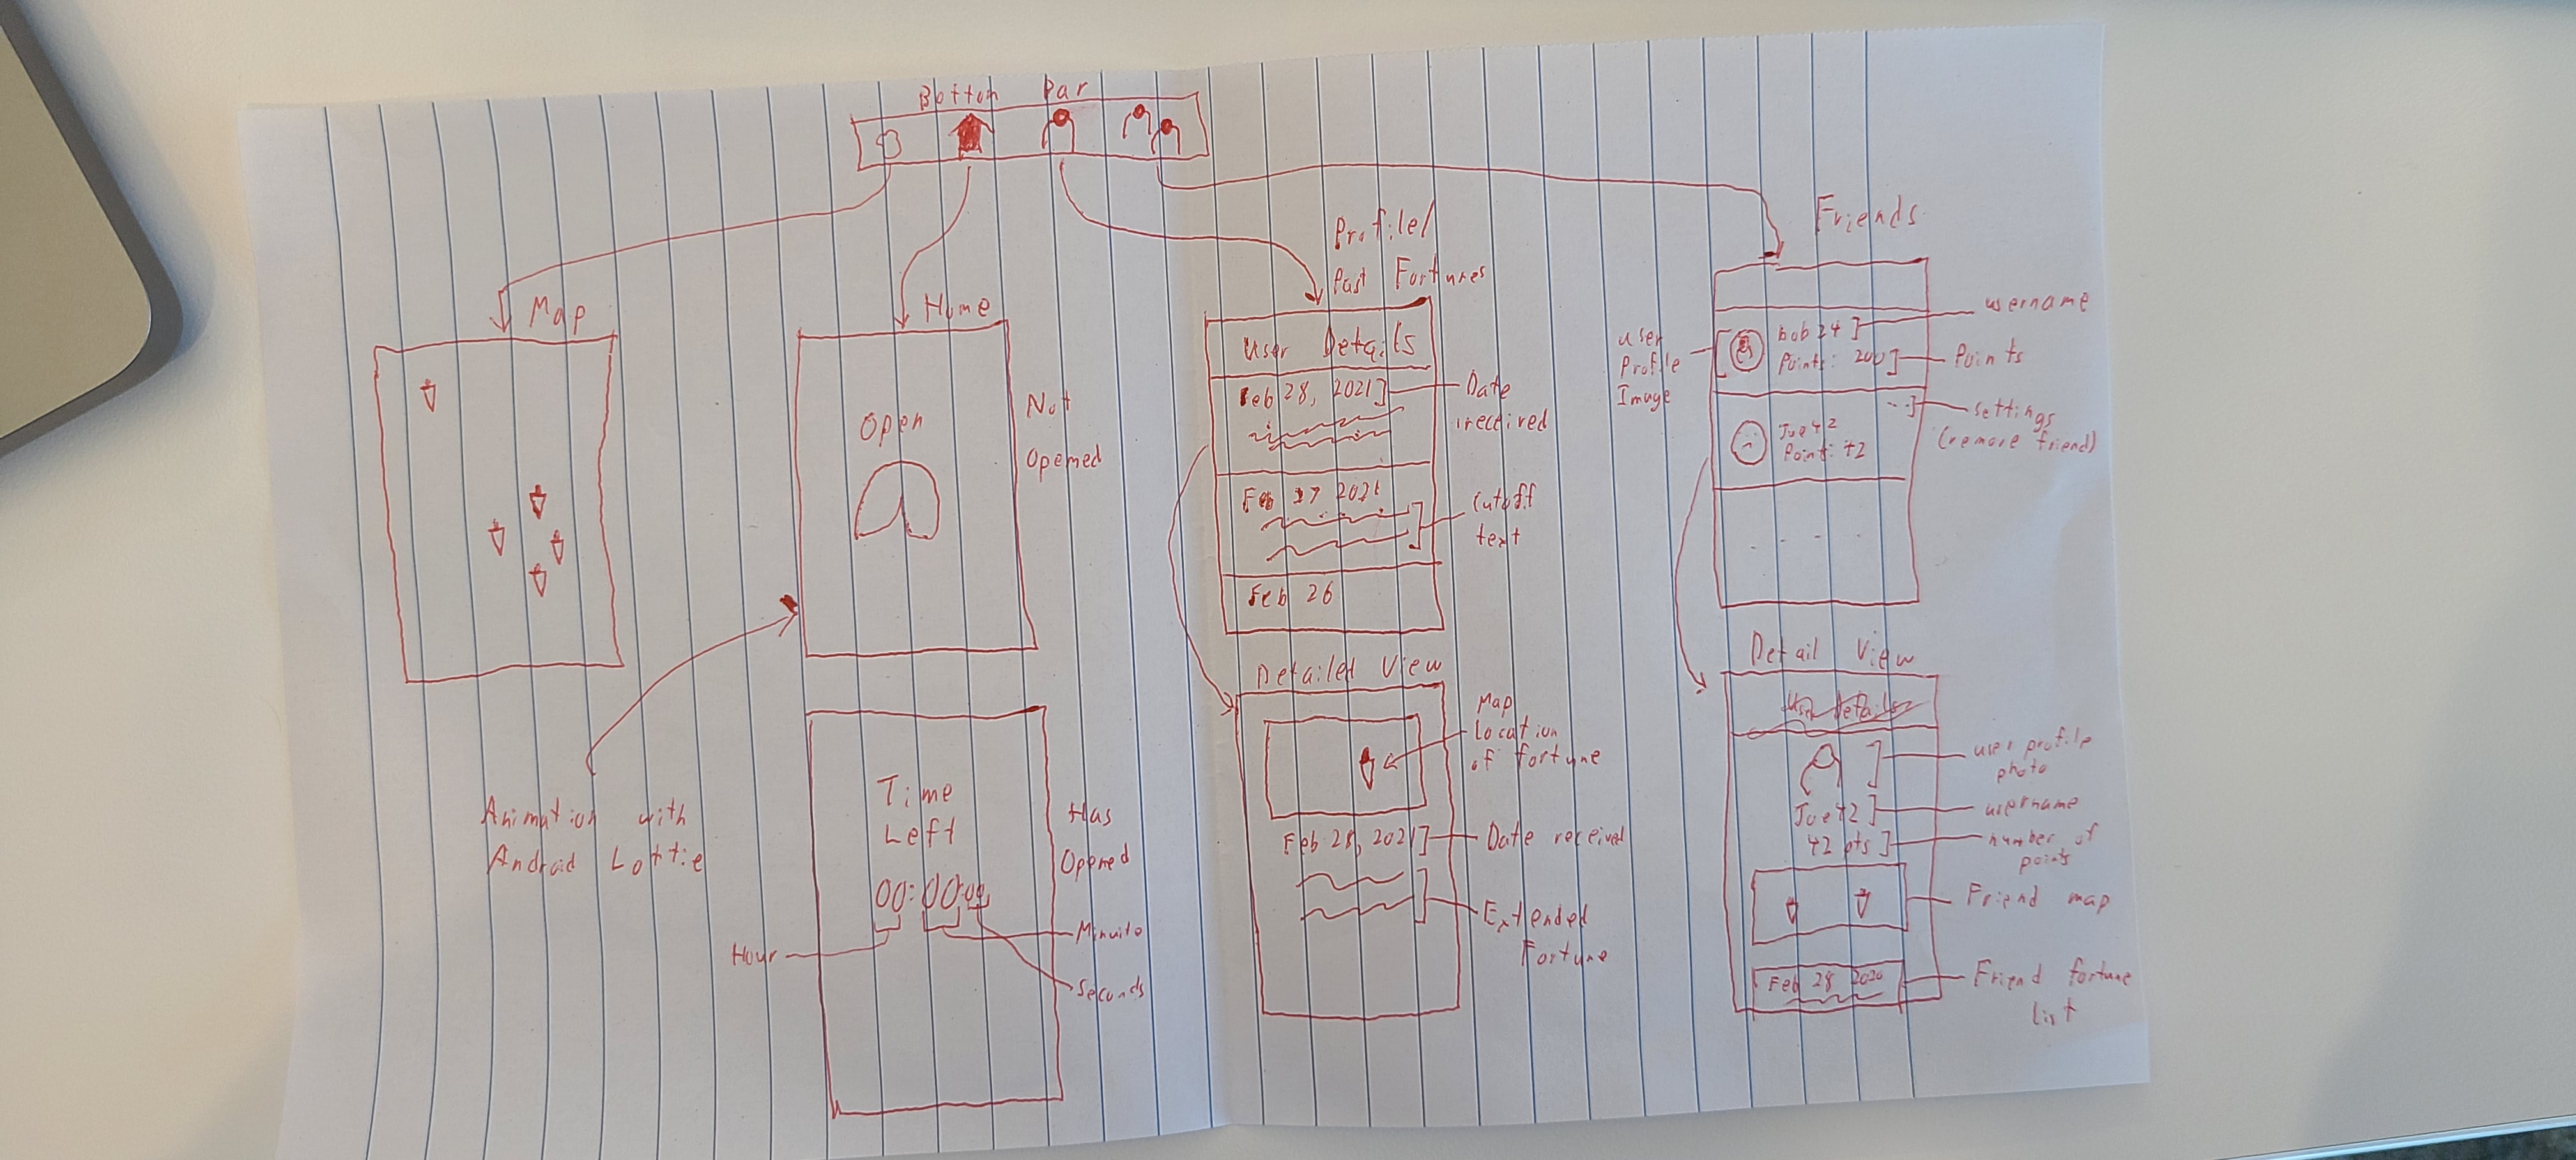 Bottom Bar
Map
Home
Open
Not
Opened
Animation with
Android Lottie
Time
Left
00:00:00
Has
Opened
Hour
Seconds
Profile/
Past Fortunes
User Details
Feb 28, 2021
Date
received
Feb 27 2021
Cutoff
text
Feb 26
Detailed View
Map
Location
of fortune
Feb 28, 2021
Date received
Extended
Fortune
Friends
bob24
Points: 200
username
Points
user
Profile
Image
Joe42
Point: 42
settings
(remove friend)
Detail View
User Details
user profile
photo
Joe42
username
42 pts
number of
points
Friend map
Feb 28 2020
Friend fortune
List